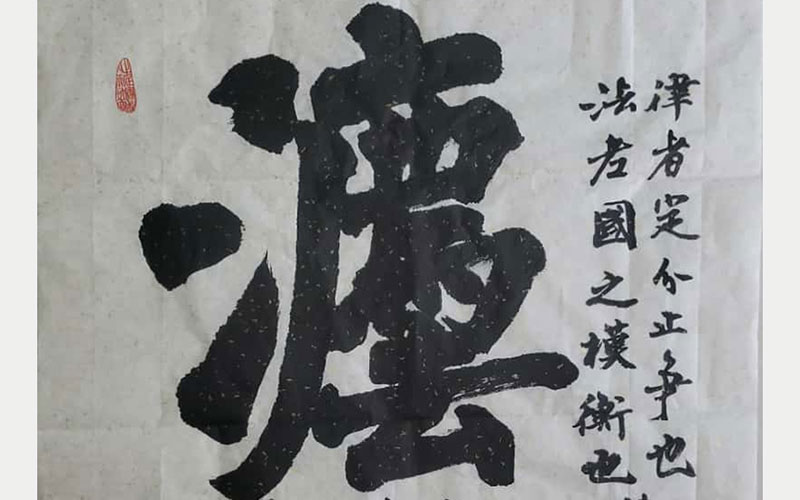 律者定分止争也
法者國之模衡也
灋